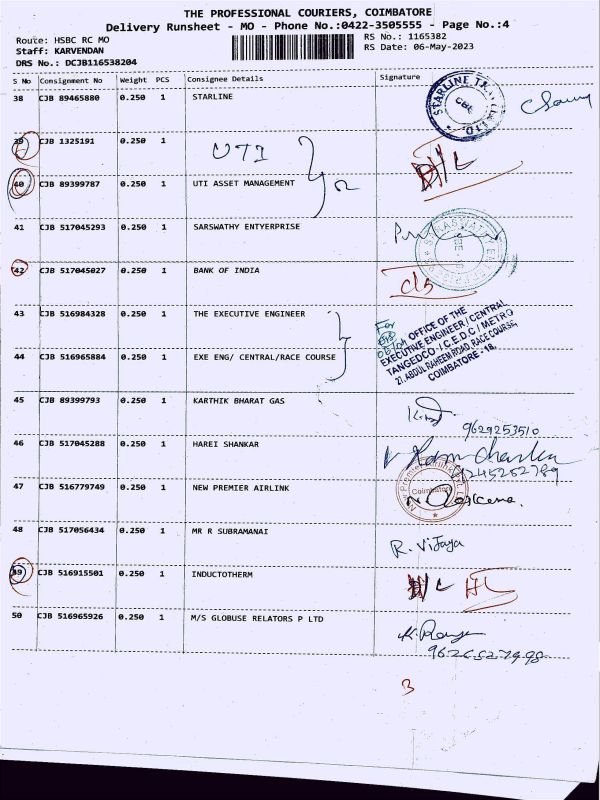 THE PROFESSIONAL COURIERS, COIMBATORE
Delivery Runsheet - MO - Phone No.:0422-3505555 - Page No.:4
Route: HSBC RC MO
RS No.: 1165382
Staff: KARVENDAN
RS Date: 06-May-2023
DRS No.: DCJB116538204
S No Consignment No Weight PCS Consignee Details Signature
38 CJB 89465880 0.250 1 STARLINE
39 CJB 1325191 0.250 1 UTI
40 CJB 89399787 0.250 1 UTI ASSET MANAGEMENT
41 CJB 517045293 0.250 1 SARSWATHY ENTYERPRISE
42 CJB 517045027 0.250 1 BANK OF INDIA
43 CJB 516984328 0.250 1 THE EXECUTIVE ENGINEER
For
OFFICE OF THE
EXECUTIVE ENGINEER / CENTRAL
TANGEDCO / C.E.D.C / METRO
27, ABDUL RAHEEM ROAD, RACE COURSE,
COIMBATORE - 18.
44 CJB 516965884 0.250 1 EXE ENG/ CENTRAL/RACE COURSE
45 CJB 89399793 0.250 1 KARTHIK BHARAT GAS
9629253510
46 CJB 517045288 0.250 1 HAREI SHANKAR
9245262789
47 CJB 516779749 0.250 1 NEW PREMIER AIRLINK
New Premier Airlink
Coimbatore
48 CJB 517056434 0.250 1 MR R SUBRAMANAI
R. Vijaya
49 CJB 516915501 0.250 1 INDUCTOTHERM
50 CJB 516965926 0.250 1 M/S GLOBUSE RELATORS P LTD
3